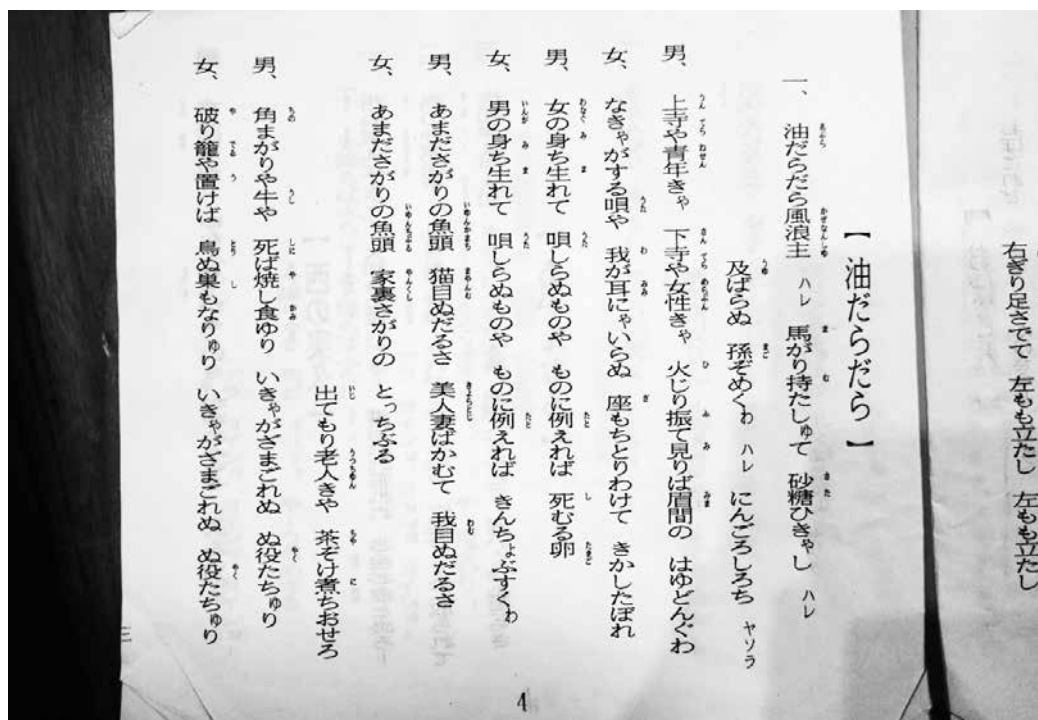 右ぎり足さでて 左もも立たし 左もも立たし
【 油だらだら 】
一、 油だらだら風浪主 ハレ 馬がり持たしゅて 砂糖ひきゃし ハレ
及ばらぬ 孫ぞめくわ ハレ にんごろしろち ヤソラ
男、 上寺や青年きゃ 下寺や女性きゃ 火じり振て見りば眉間の はゆどんぐわ
女、 なきゃがする唄や 我が耳にゃいらぬ 座もちとりわけて きかしたぼれ
男、 女の身ち生れて 唄しらぬものや ものに例えれば 死むる卵
女、 男の身ち生れて 唄しらぬものや ものに例えれば きんちょぶすくわ
男、 あまださがりの魚頭 猫目ぬだるさ 美人妻ばかむて 我目ぬだるさ
女、 あまださがりの魚頭 家裏さがりの とっちぶる
出てもり老人きや 茶ぞけ煮ちおせろ
男、 角まがりや牛や 死ば焼し食ゆり いきゃがざまごれぬ ぬ役たちゅり
女、 破り籠や置けば 鳥ぬ巣もなりゅり いきゃがざまごれぬ ぬ役たちゅり
三
4